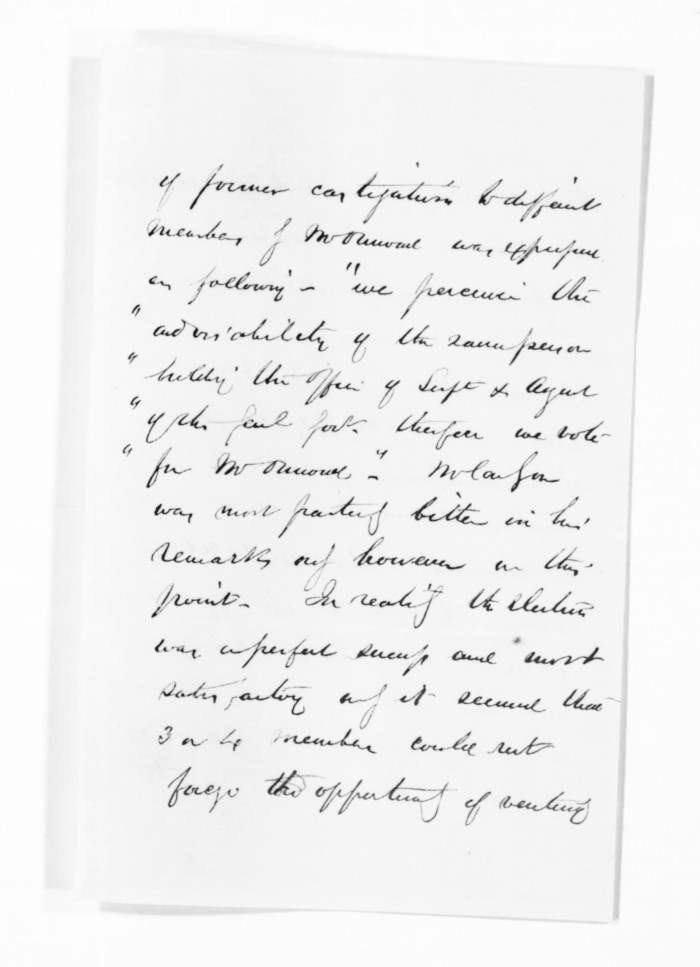 of former castigations to different
members of Mr Ormond was expressed
as following - "we perceive the
" advisability of the same person
" holding the office of Supt & Agent
" of the Genl Govt. therefore we vote
" for Mr Ormond". McLean
was most bitter in his
remarks only however on this
point - In reality the election
was a perfect success and most
satisfactory only it seemed that
3 or 4 members could not
forego the opportunity of venting